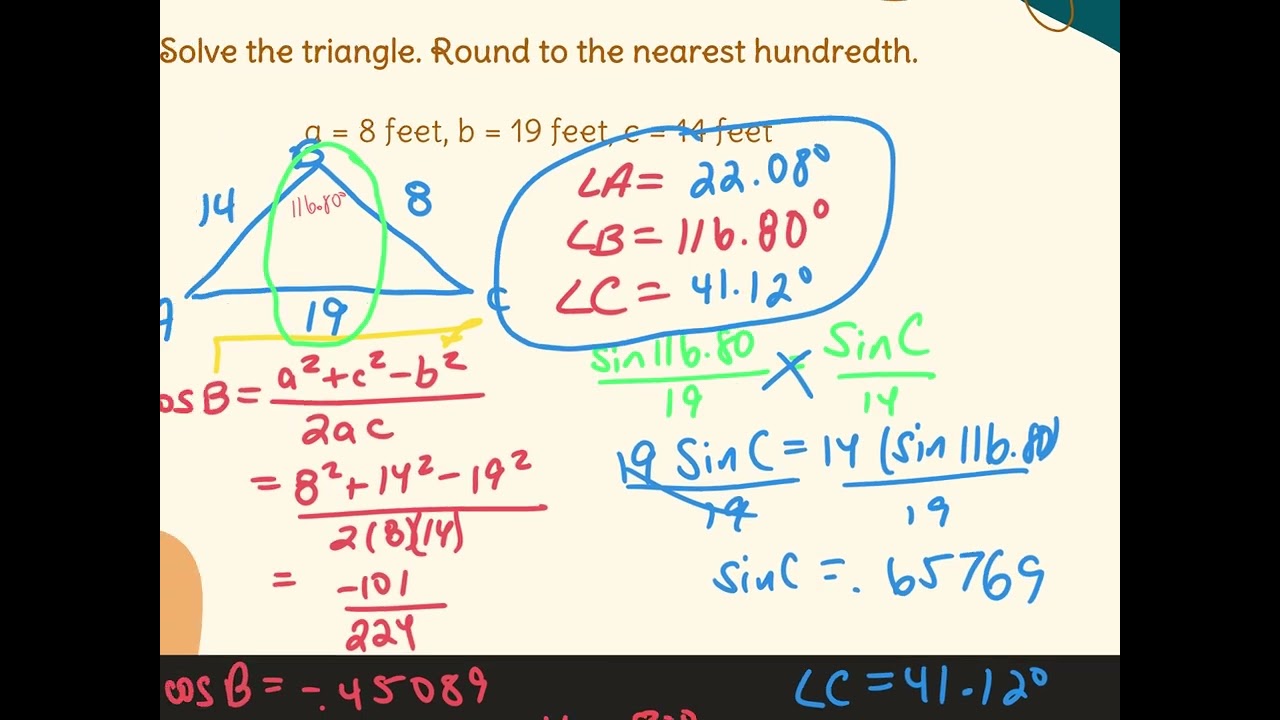 Solve the triangle. Round to the nearest hundredth.
a = 8 feet, b = 19 feet, c = 14 feet
B
14
116.80°
8
A
19
C
∠A = 22.08°
∠B = 116.80°
∠C = 41.12°
cos B = a² + c² - b² / 2ac
= 8² + 14² - 19² / 2(8)(14)
= -101 / 224
cos B = -.45089
sin 116.80 / 19 = sin C / 14
19 sin C / 19 = 14 (sin 116.80) / 19
sin C = .65769
∠C = 41.12°